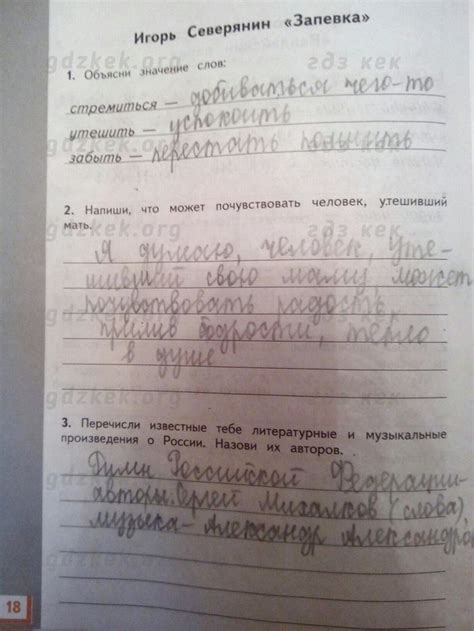 Игорь Северянин «Запевка»
gdzkek.org гдз кек
1. Объясни значение слов:
стремиться — добиваться чего-то
утешить — успокоить
забыть — перестать помнить
2. Напиши, что может почувствовать человек, утешивший
мать.
Я думаю, человек, уте-
шивший свою маму, может
почувствовать радость,
прилив бодрости, тепло
в душе
gdzkek.org гдз кек
3. Перечисли известные тебе литературные и музыкальные
произведения о России. Назови их авторов.
Гимн Российской Федерации-
авторы: Сергей Михалков (слова),
музыка - Александр Александров
18